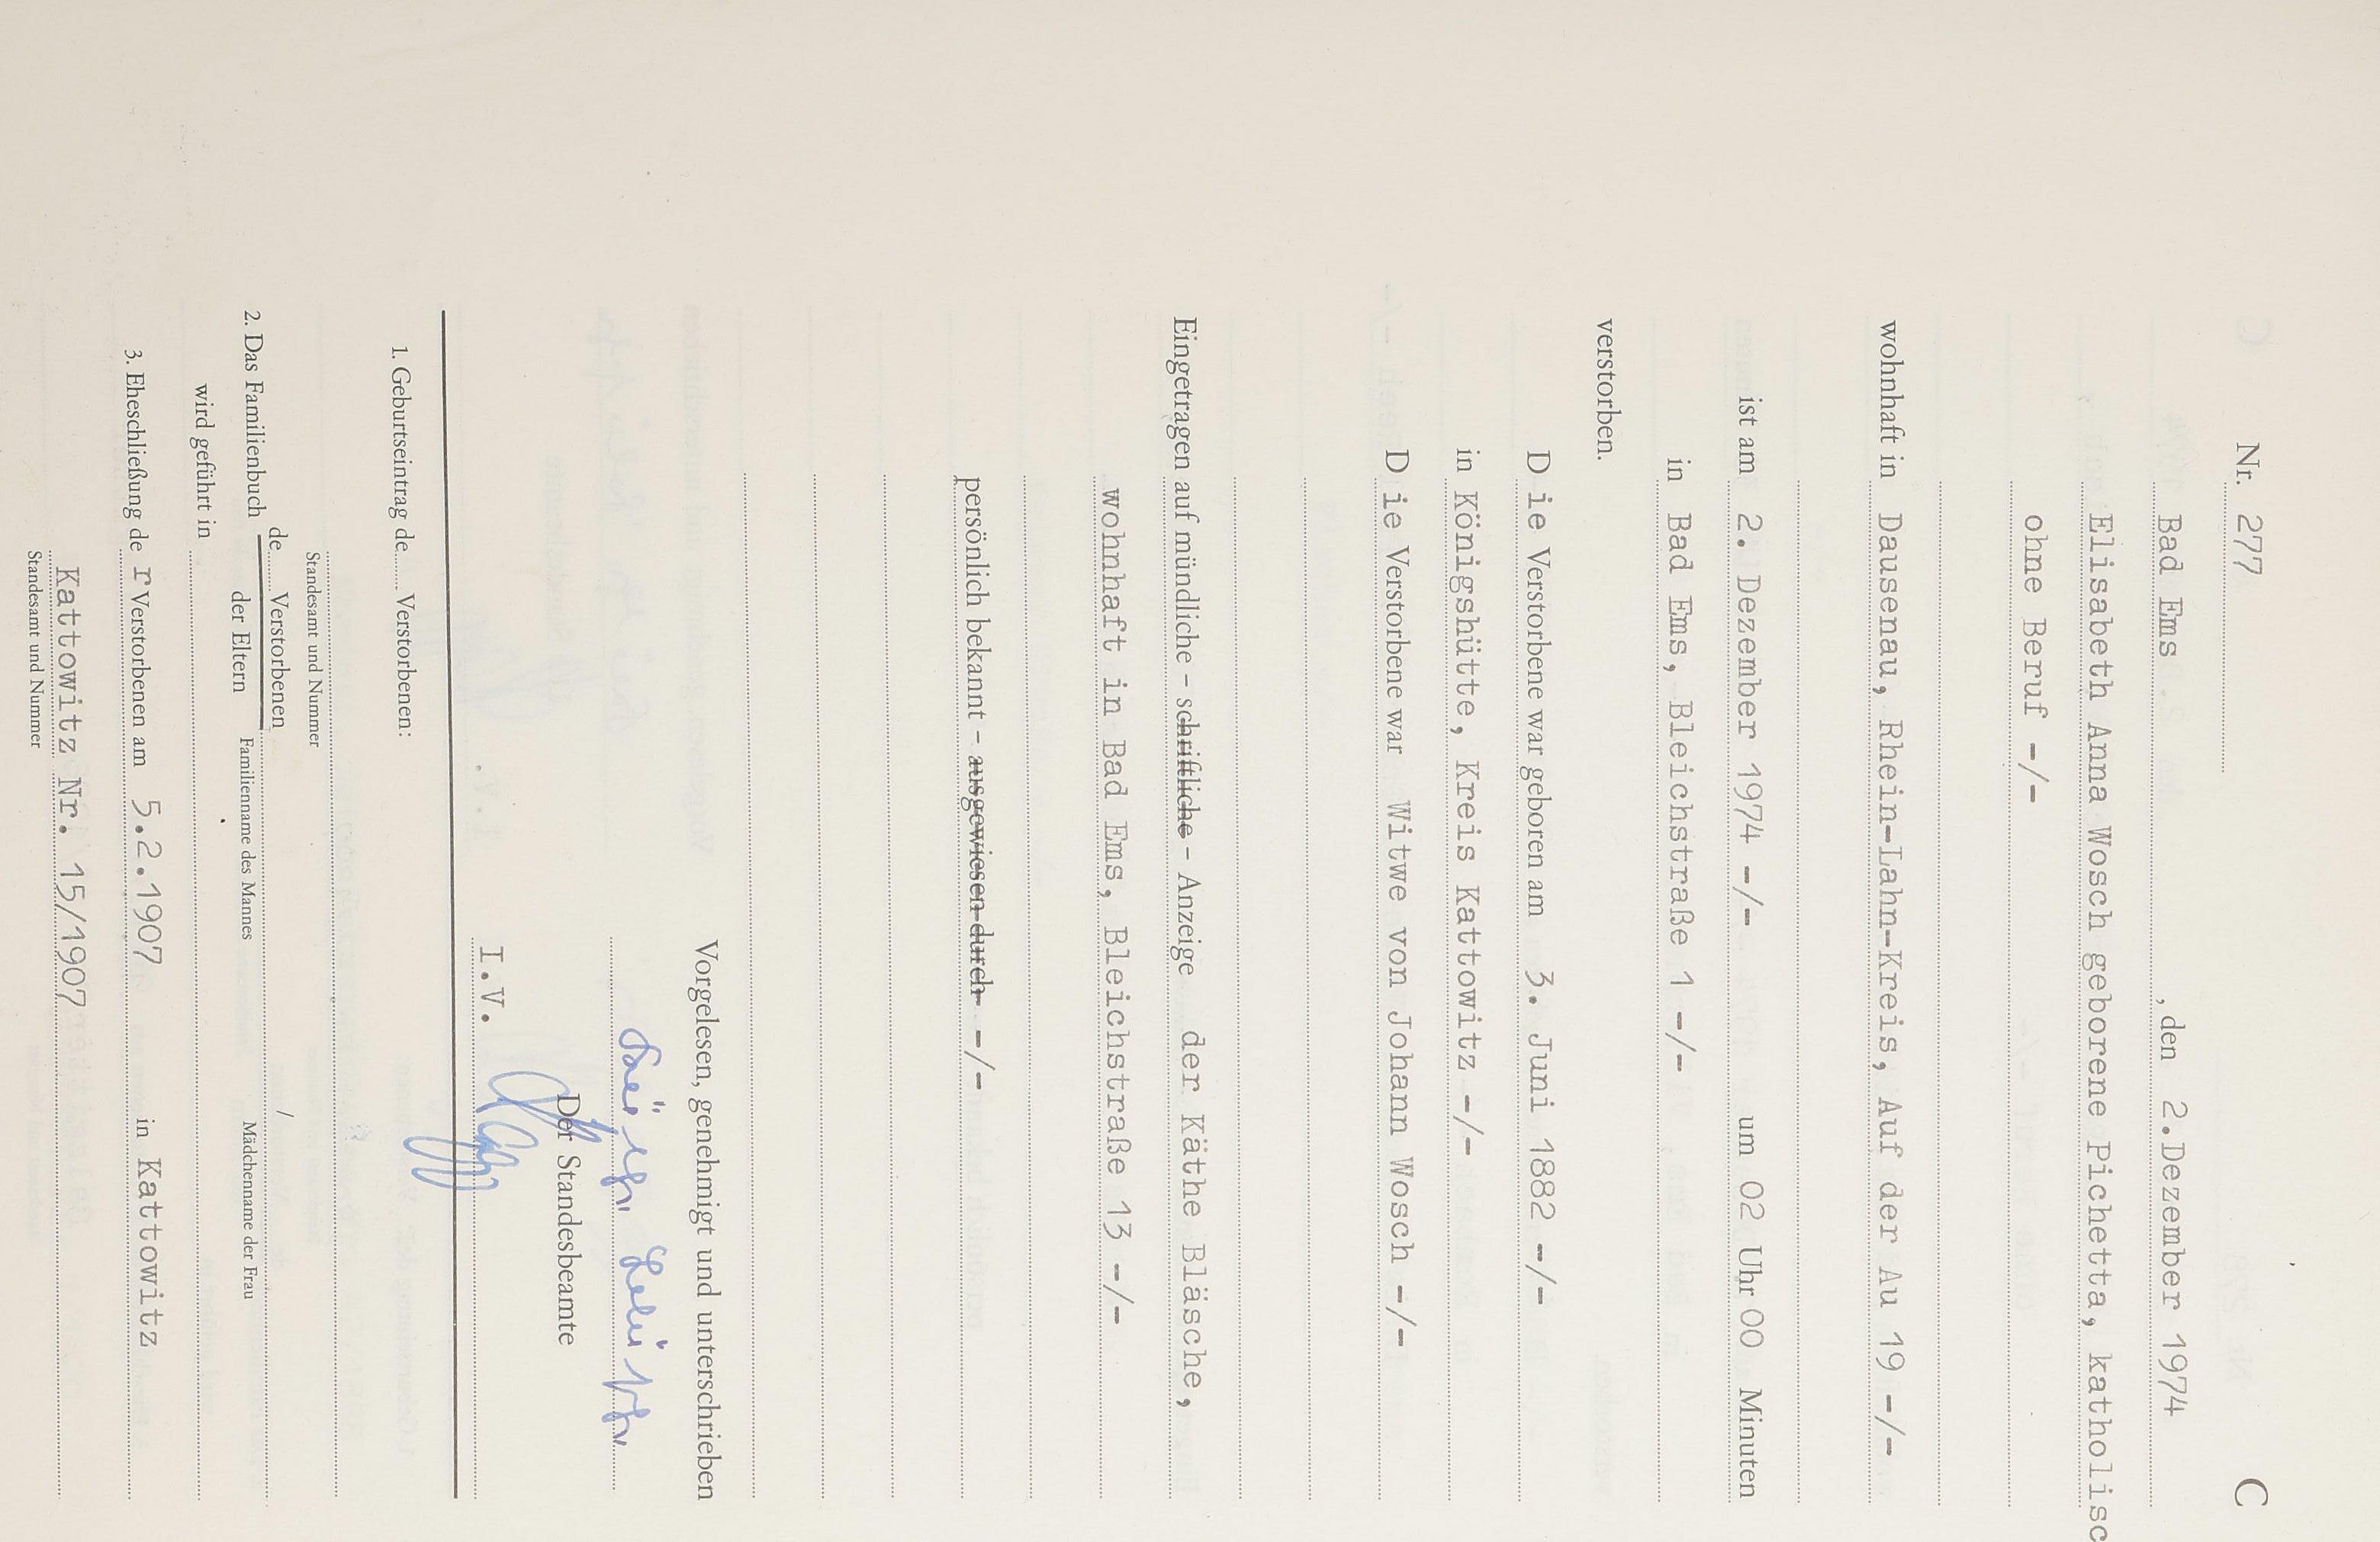 C
Nr. 277
Bad Ems, den 2.Dezember 1974
Elisabeth Anna Wosch geborene Pichetta, katholisc
ohne Beruf -/-
wohnhaft in Dausenau, Rhein-Lahn-Kreis, Auf der Au 19 -/-
ist am 2. Dezember 1974 -/- um 02 Uhr 00 Minuten
in Bad Ems, Bleichstraße 1 -/-
verstorben.
D ie Verstorbene war geboren am 3. Juni 1882 -/-
in Königshütte, Kreis Kattowitz -/-
D ie Verstorbene war Witwe von Johann Wosch -/-
Eingetragen auf mündliche - schriftliche - Anzeige der Käthe Bläsche,
wohnhaft in Bad Ems, Bleichstraße 13 -/-
persönlich bekannt - ausgewiesen durch -/-
Vorgelesen, genehmigt und unterschrieben
Der Standesbeamte
I.V.
1. Geburtseintrag de Verstorbenen:
Standesamt und Nummer
2. Das Familienbuch de Verstorbenen /
der Eltern Familienname des Mannes Mädchenname der Frau
wird geführt in
3. Eheschließung de r Verstorbenen am 5.2.1907 in Kattowitz
Kattowitz Nr. 15/1907
Standesamt und Nummer